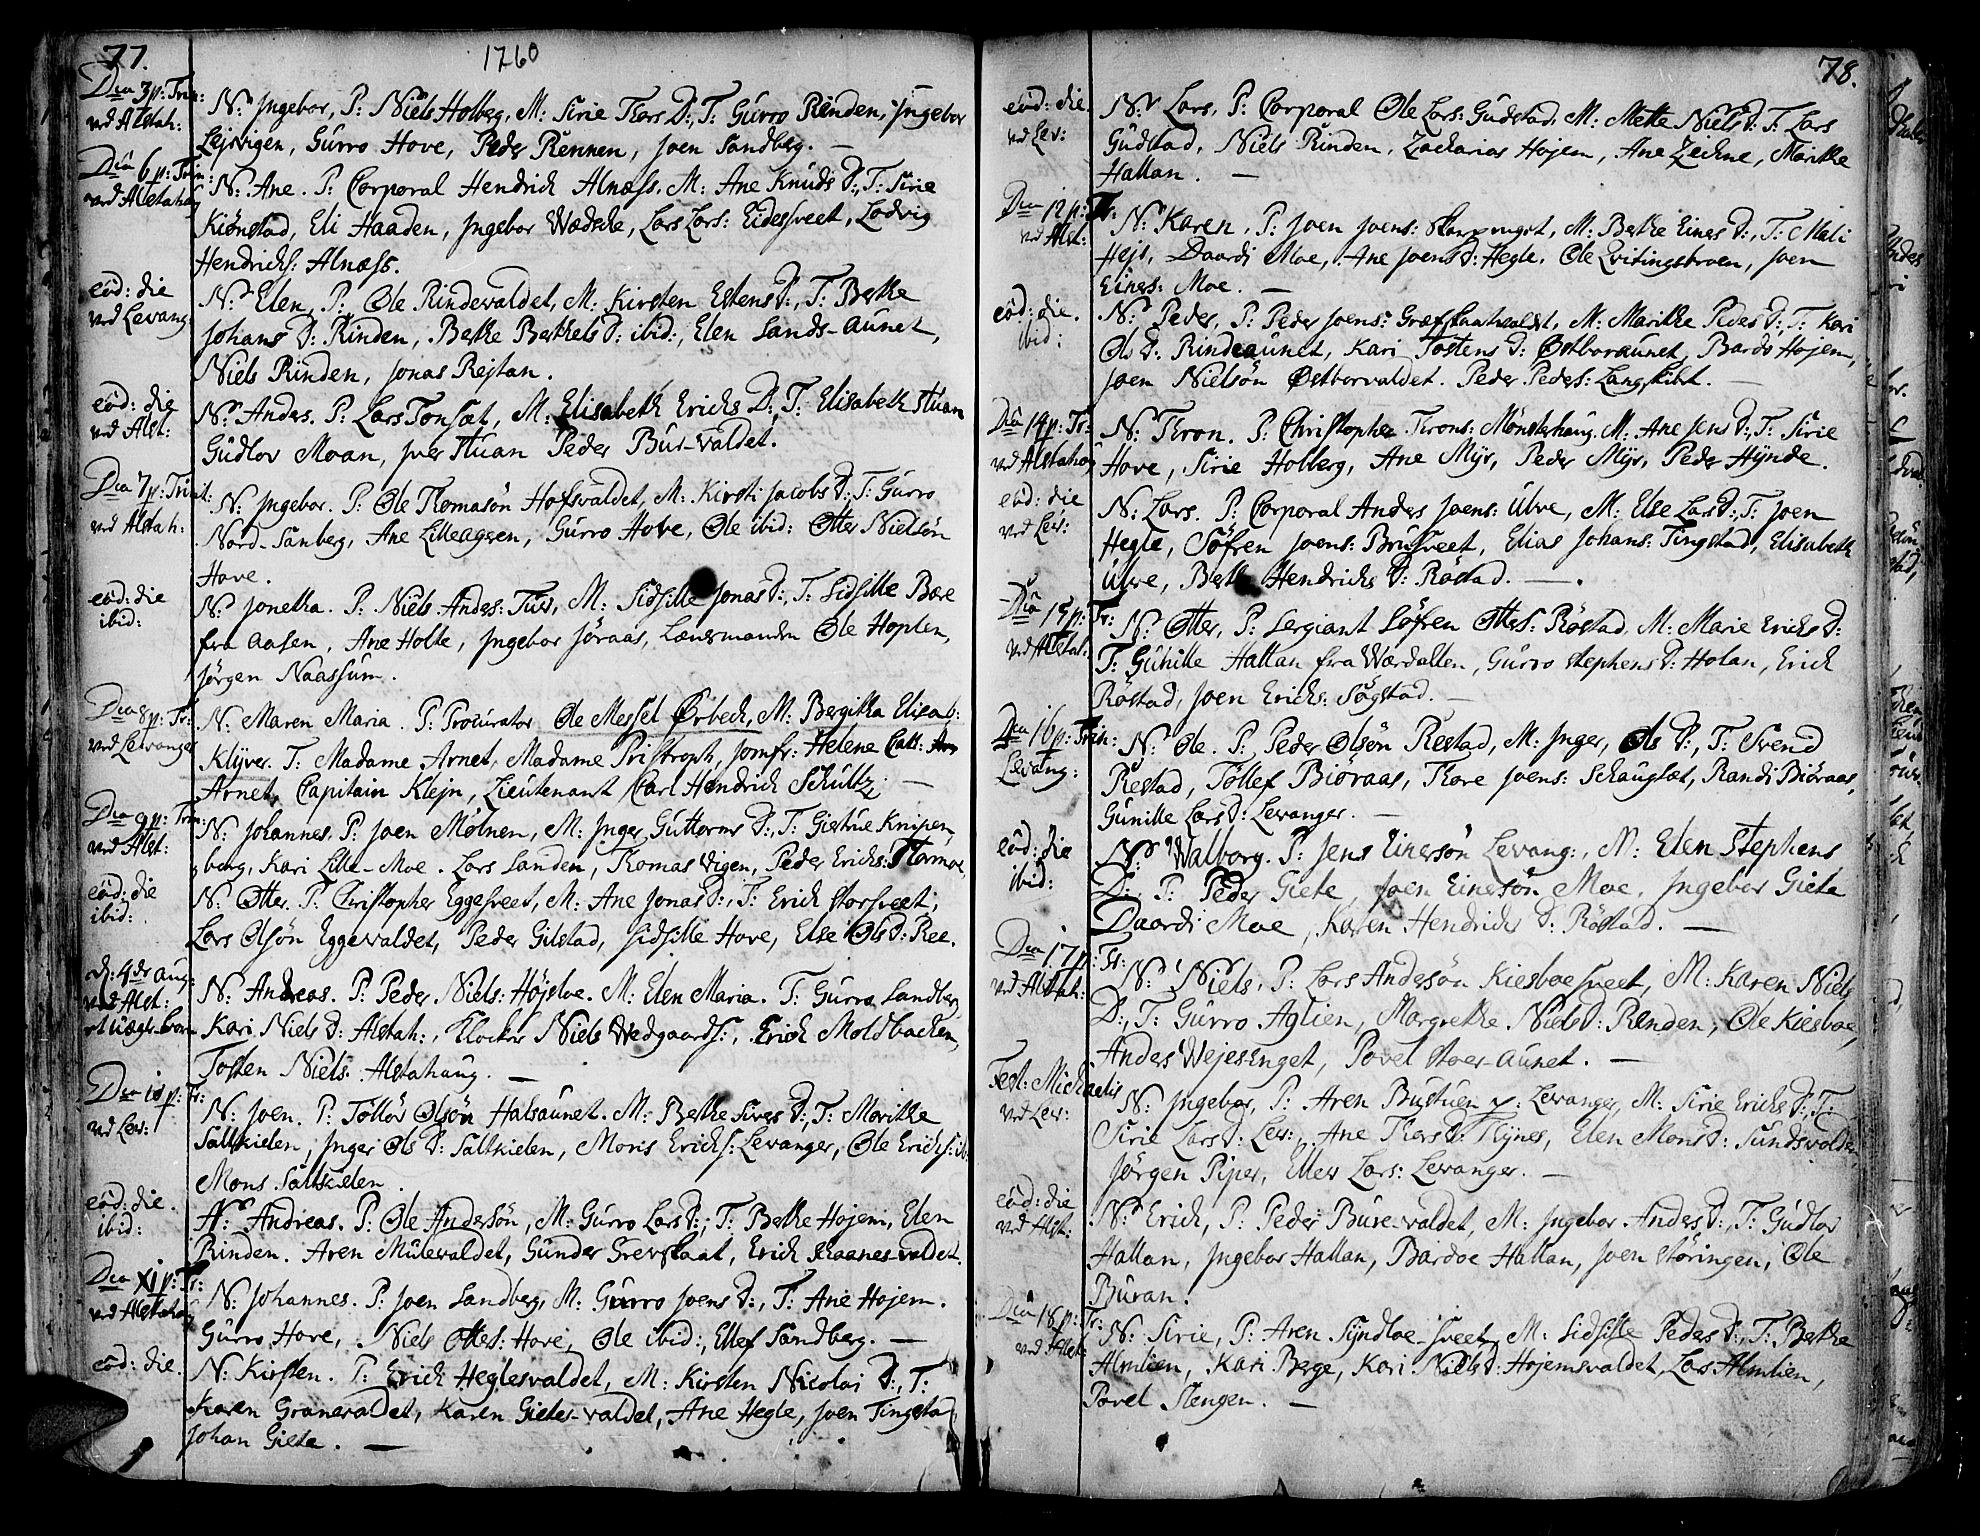 77.
1760
Dca 3 p: Trin:
ved Alstah:
N: Ingebor, P: Niels Holberg, M: Sirie Thors D:, T: Gurro Rinden, Ingebor
Lejrvigen, Gurro Hove, Peder Rennen, Joen Sandberg. —
Dca 6 p: Trin:
ved Alstahoug
N: Ane. P: Corporal Hendrich Alnæss. M: Ane Knuds D:, T: Sirie
Kiønstad, Eli Haaden, Ingebor Wædske, Lars Lars: Eidessveet, Lodvig
Hendrichs: Alnæss.
eod: die
ved Levang
N: Elen, P: Ole Rindevaldet, M: Kirsten Estens D:, T: Berthe
Johans D: Rinden, Berthe Berthels D: ibid:, Elen Sands-aunet,
Niels Rinden, Jonas Rejtan.
eod: die
ved Alst:
N: Andas. P: Lars Tonsæt, M: Elisabeth Erichs D:, T: Elisabeth Stuan
Gudlov Moan, Iver Stuan Peder Bur-valdet.
Dca 7 p: Trinit:
ved Alstah:
N: Ingebor. P: Ole Thomasön Hofsvaldet, M: Kirsti Jacobs D:, T: Gurro
Nord-Sanberg, Ane Lilleaggen, Gurro Hove, Ole ibid: Otter Nielsön
Hove.
eod: die
ibid:
N: Jonetha. P: Niels Andes: Tuv, M: Sidsille Jonas D:, T: Sidsille Bære
fra Aasen, Ane Holte, Ingebor Jöraas, Lænsmanden Ole Hoplen,
Jörgen Naassum.
Dca 8 p: Tr:
ved Levanger
N: Maren Maria. P: Procurator Ole Messel Ørbeck, M: Bergitha Elisab:
Klÿver. T: Madame Arnet, Madame Pristroph, Jomfr: Helene Cath:
Arnet, Capitain Klejn, Lieutenant Carl Hendrich Schultz: —
Dca 9 p: Trin:
ved Alst:
N: Johannes. P: Joen Molnen, M: Inger Guttorms D:, T: Giertrue Knipen-
berg, Kari Lille-Moe. Lars Sanden, Thomas Vigen, Peder Erichs: Starmoe,
eod: die
ibid:
N: Otter. P: Christopher Eggesveet, M: Ane Jonas D:, T: Erich Storsveet,
Lars Olsön Eggevaldet, Peder Gilstad, Sidsille Hove, Else Ols D: Ree.
d: 4de Aug:
ved Alst:
N: Andreas. P: Peder Niels: Höjsloe. M: Elen Maria. T: Gurro Sandberg
Kari Niels D: Alstah:, Klocker Niels Wedgaards:, Erich Moldbacken,
Tosten Niels: Alstahaug. —
Dca 10 p: Tr:
ved Lev:
N: Joen. P: Töllöv Olsön Halsaunet. M: Berthe Sivers D:, T: Marithe
Saltkielen, Inger Ols D: Saltkielen, Moris Erichs: Levanger, Ole Erichs: ib:
Mons Saltkielen.
eod: die.
ibid:
N: Andreas. P: Ole Andersön, M: Gurro Lars D:, T: Berthe Hojem, Elen
Rinden. Aren Mulevaldet, Gunder Grevskaat, Erich Skaanes-valdet.
Dca XI p: Tr:
ved Alstahoug
N: Johannes. P: Joen Sandberg, M: Gurro Joens D:, T: Ane Hojem.
Gurro Hove, Niels Ottes: Hove, Ole ibid:, Ellef Sandberg. —
eod: die.
N: Kirsten. P: Erich Heglesvaldet, M: Kirsten Nicolai D:, T:
Karen Granevaldet, Karen Gietes-valdet, Ane Hegle, Joen Tingstad
Johan Giete. —
78.
eod: die.
ved Lev:
N: Lars, P: Corporal Ole Lars: Gudstad, M: Mette Niels D: T: Lars
Gudstad, Niels Rinden, Zacharias Hojem, Ane Zechne, Marithe
Hallan. —
Dca 12 p: Tr:
ved Alst:
N: Karen, P: Joen Joens: , M: Berthe Eines D:, T: Mali
Hejs, Daardi Moe, Ane Joens D: Hegle, Ole Qvitingstroen, Joen
Eines: Moe. —
eod: die.
ibid:
N: Peder, P: Peder Joens: , M: Marithe Pedes D: T: Kari
Ols D: Rindeaunet, Kari Tostens D: Østboraunet, Bardo Hojem,
Joen Nielsön Østborvaldet. Peder Pedes: Langskibt. —
Dca 14 p: Tr:
ved Alstahoug
N: Thron. P: Christopher Throns: Mönsterhaug. M: Ane Jens D:, T: Sirie
Hove, Sirie Holberg, Ane Mÿr, Peder Mÿr, Peder Hÿnde.
eod: die
ved Lev:
N: Lars. P: Corporal Anders Joens: Ulve, M: Else Lars D:, T: Joen
Hegle, Söfren Joens: Brusveet, Elias Johans: Tingstad, Elisabeth
Ulve, Berth Hendrichs D: Röstad. —.
Dca 15 p: Tr:
ved Alstah:
N: Otter, P: Sergiant Söfren Ottes: Röstad, M: Marie Erichs D:
T: Guhille Hallan fra Wærdallen, Gurro Stephens D: Holan, Erich
Röstad, Joen Erichs: Sögstad. —
Dca 16 p: Trin:
Levang:
N: Ole. P: Peder Olsön Restad, M: Inger, Ols D:, T: Svend
Restad, Töllef Biöraas, Thore Joens: Schaugsæt, Randi Biöraas,
Gunille Lars D: Levanger. —
eod: die
ibid:
N: Walborg. P: Jens Einersön Levang:, M: Elen Stephens
D:, T: Peder Giete, Joen Einersön Moe, Ingebor Giete
Daardi Moe, Karen Hendrichs D: Röstad. —
Dca 17 p: Tr:
ved Alstah:
N: Niels, P: Lars Andesön Kiesboesveet, M: Karen Niels
D:, T: Gurro Aglien, Margrethe Niels D: Renden, Ole Kiesboe,
Andes Wejesenget, Povel Stoer-aunet. —
Fest: Michaelis
ved Lev:
N: Ingebor, P: Aren Bustuen p: Levanger, M: Sirie Erichs D:, T:
Sirie Lars D: Lev:, Ane Thors D: Thÿnes, Elen Mons D: Sundsvalde,
Jörgen Piper, Ellev Lars: Levanger. —
eod: die
ved Alst:
N: Erich, P: Peder Bure-valdet, M: Ingebor Andes D:, T: Gudlov
Hallan, Ingebor Hallan, Bardoe Hallan, Joen Störingen, Ole
Buran.
Dca 18 p: Tr:
ved Alst:
N: Sirie, P: Aren Sÿndloe-sveet, M: Sidsille Pedes D:, T: Berthe
Almlien, Kari Berge, Kari Niels D: Hojemsvaldet, Lars Almlien,
Povel Stengen. —